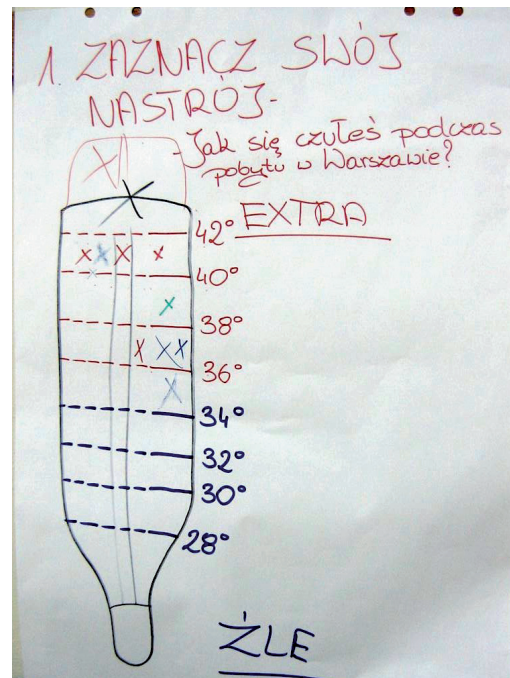 1. ZAZNACZ SWÓJ
NASTRÓJ-
-Jak się czułeś podczas
pobytu w Warszawie?
42° EXTRA
40°
38°
36°
34°
32°
30°
28°
ŹLE